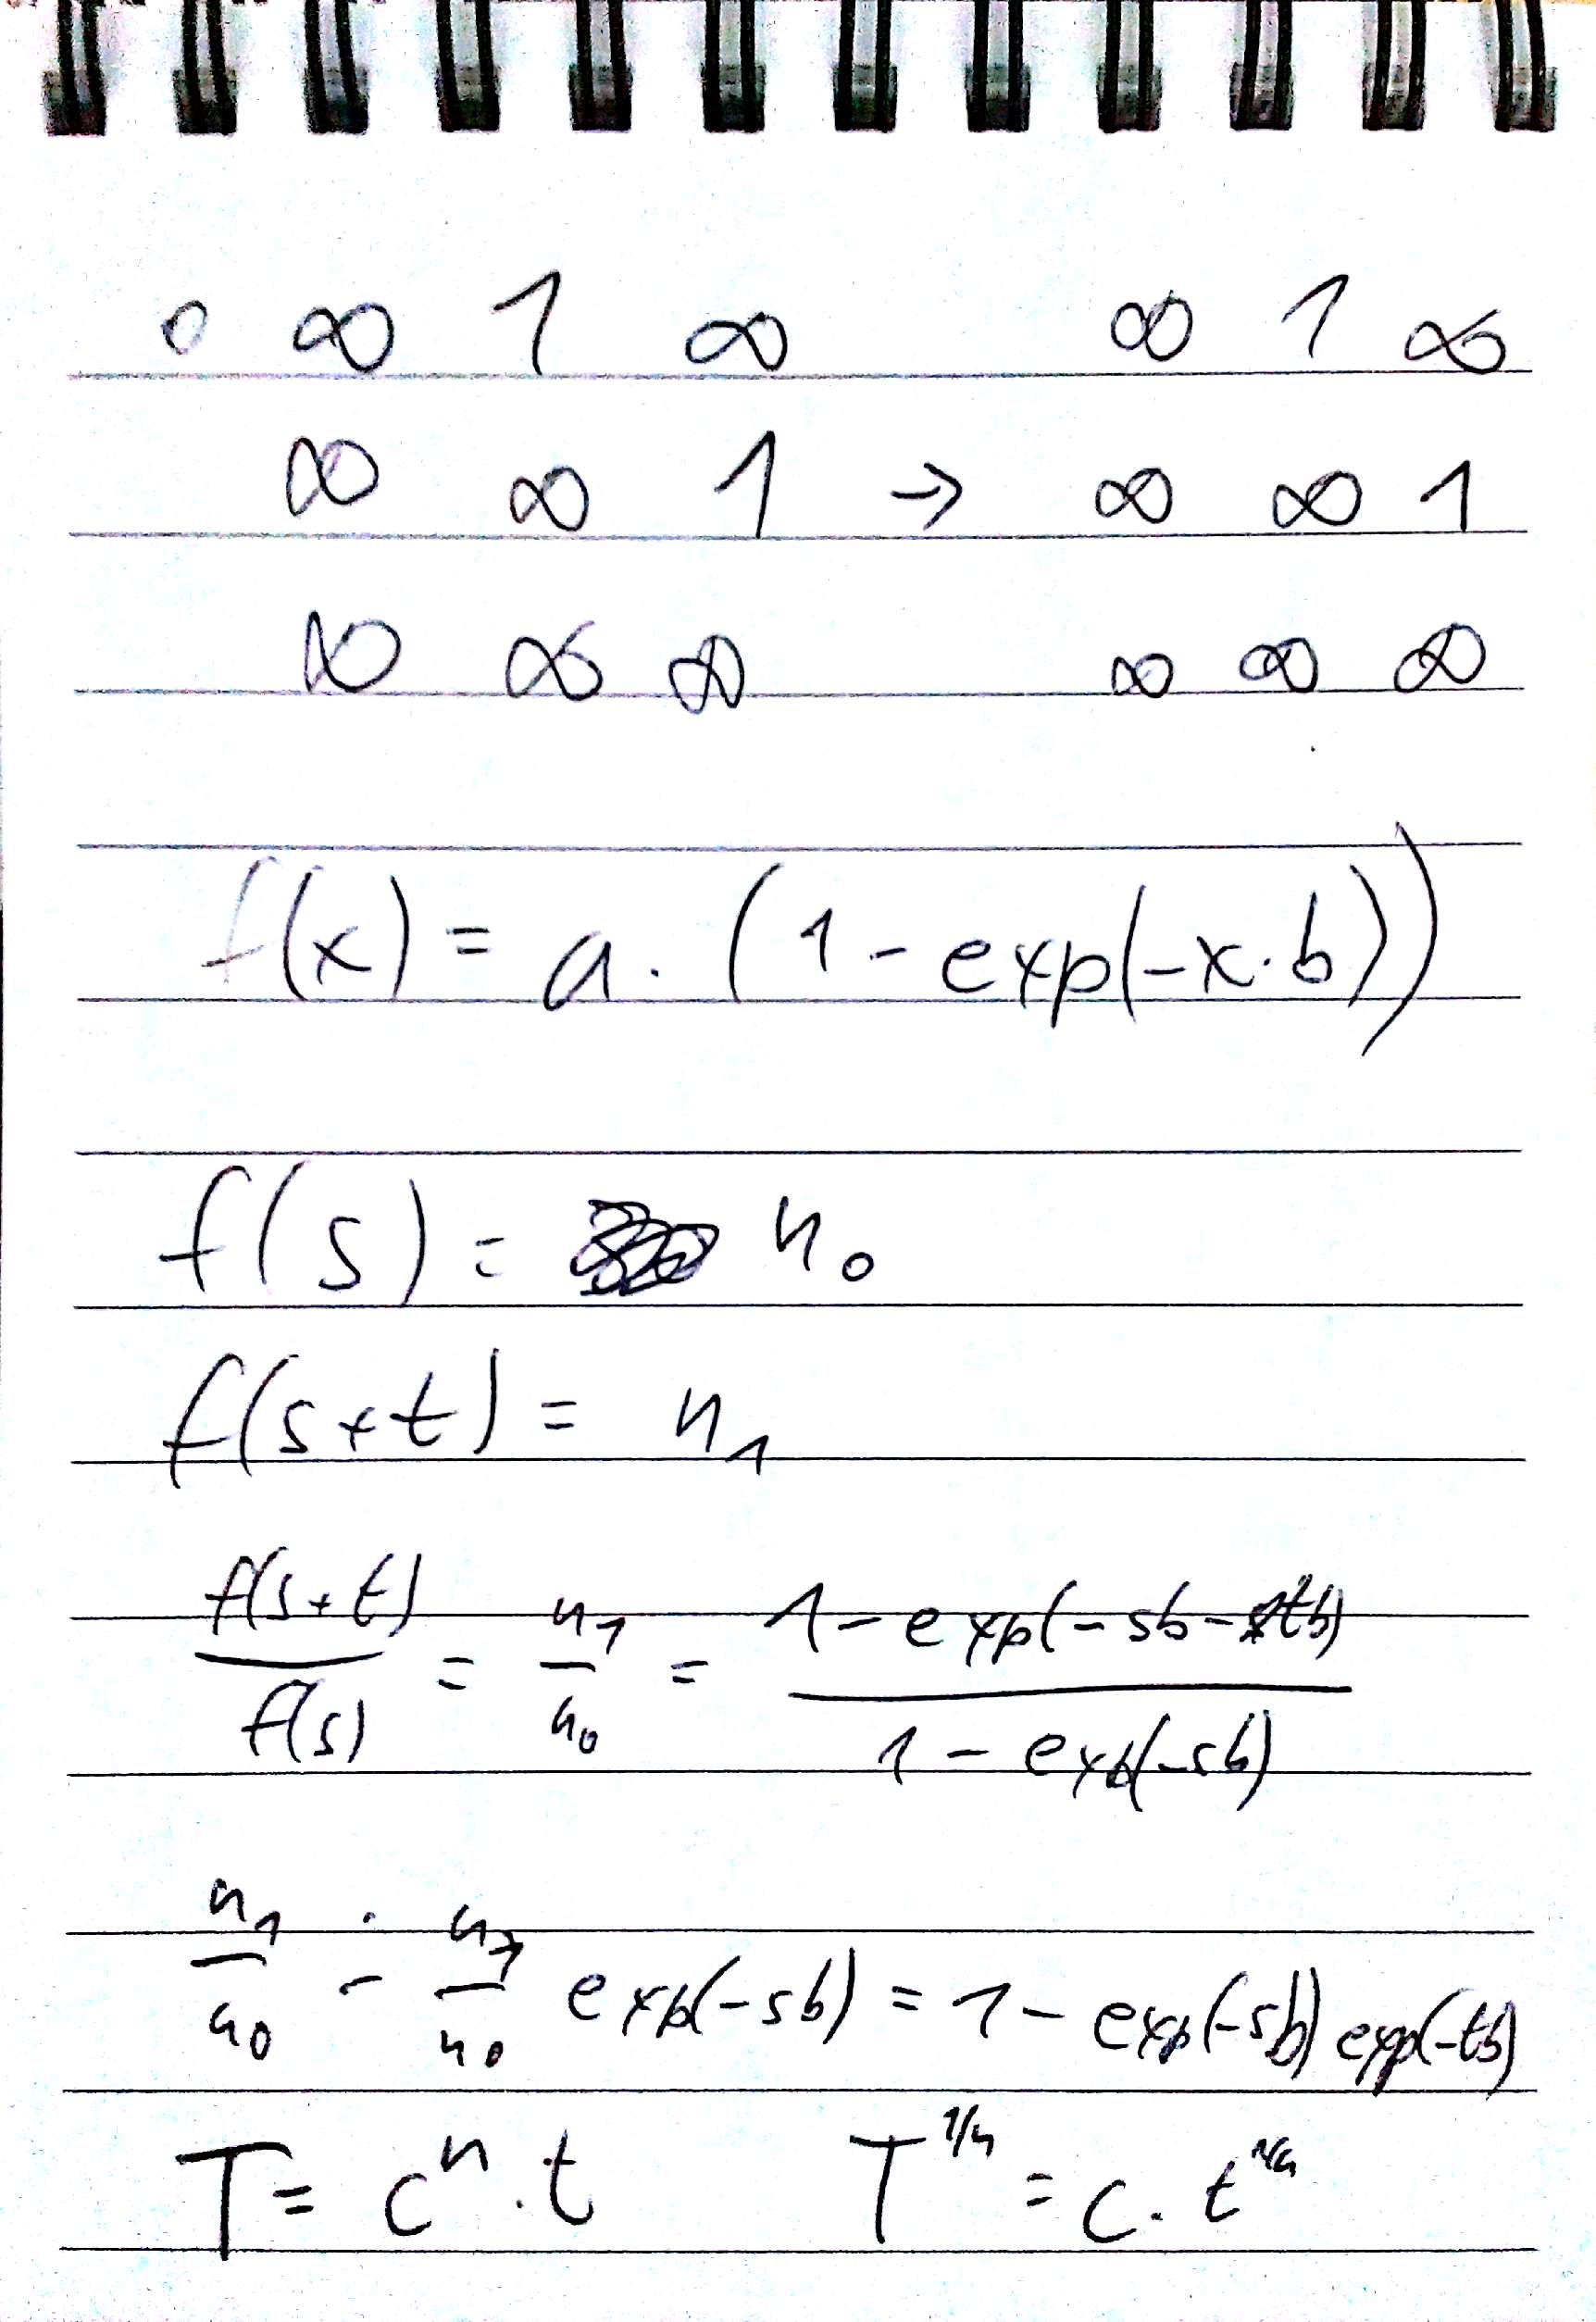 0 ∞ 1 ∞ ∞ 1 ∞
∞ ∞ 1 → ∞ ∞ 1
∞ ∞ ∞ ∞ ∞ ∞
f(x) = a · (1 - exp(-x·b))
f(s) = n₀
f(s+t) = n₁
f(s+t)/f(s) = n₁/n₀ = (1 - exp(-sb - tb))/(1 - exp(-sb))
n₁/n₀ - n₁/n₀ exp(-sb) = 1 - exp(-sb) exp(-tb)
T = cⁿ · t T^(1/n) = c · t^(1/n)